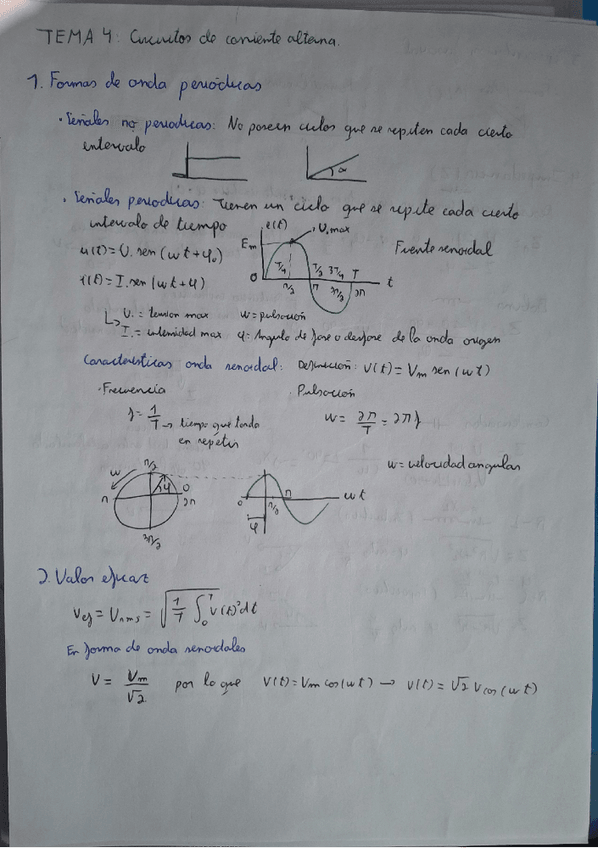 TEMA 4: Circuitos de corriente alterna.
1. Formas de onda periódicas
· Señales no periodicas: No poseen ciclos que se repiten cada cierto
intervalo
α
· Señales periodicas: Tienen un ciclo que se repite cada cierto
intervalo de tiempo
e(t)
U. max
Em
Fuente senoidal
u(t) = U. sen(wt + φ0)
T/4 T/2 3T/4 T
0 t
i(t) = I. sen(wt + φ)
π/2 π 3π/2 2π
U. = tension max w = pulsación
I. = intensidad max φ = Angulo de fase o desfase de la onda origen
Características onda senoidal: Definición: V(t) = Vm sen(wt)
· Frecuencia · Pulsación
f = 1/T → tiempo que tarda
en repetir
w = 2π/T = 2πf
w = velocidad angular
w π/2
φ 0
π 2π
3π/2
0 π wt
π/2
φ
2. Valor eficaz
Vef = Vrms = √(1/T ∫₀ᵀ V(t)² dt)
En forma de onda senoidales
V = Vm/√2 por lo que V(t) = Vm cos(wt) → V(t) = √2 V cos(wt)